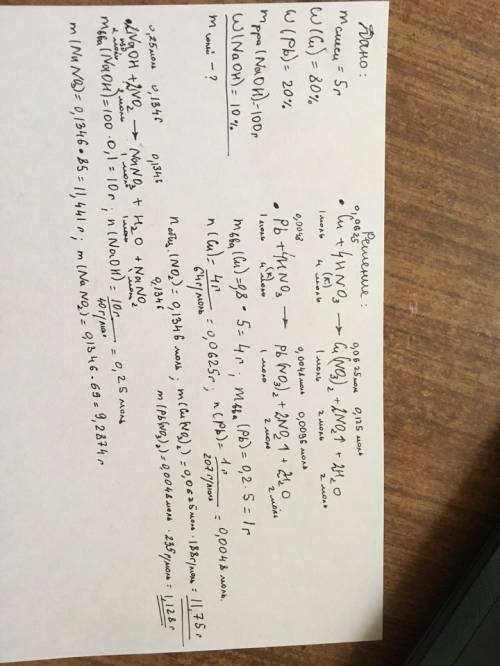 Дано:
m смеси = 5г
W(Cu) = 80%
W(Pb) = 20%
m р-ра (NaOH) = 100г
W(NaOH) = 10%
m солей - ?
Решение:
0,0625 0,0625 моль 0,125 моль
• Cu + 4HNO3 → Cu(NO3)2 + 2NO2↑ + 2H2O
(к)
1 моль 4 моль 1 моль 2 моль 2 моль
0,0048 0,0048 моль 0,0096 моль
• Pb + 4HNO3 → Pb(NO3)2 + 2NO2↑ + 2H2O
(к)
1 моль 4 моль 1 моль 2 моль 2 моль
m в-ва (Cu) = 0,8 · 5 = 4г ; m в-ва (Pb) = 0,2 · 5 = 1г
n(Cu) = 4г / 64г/моль = 0,0625г ; n(Pb) = 1г / 207г/моль = 0,0048 моль.
n общ. (NO2) = 0,1346 моль ; m(Cu(NO3)2) = 0,0625 моль · 188г/моль = 11,75г
m(Pb(NO3)2) = 0,0048 моль · 235г/моль = 1,128г
0,25 моль 0,134г 0,1346 0,1346
2NaOH + 2NO2 → NaNO3 + H2O + NaNO2
2 моль 2 моль 1 моль 1 моль 1 моль
m в-ва (NaOH) = 100 · 0,1 = 10г ; n(NaOH) = 10г / 40г/моль = 0,25 моль
m(NaNO3) = 0,1346 · 85 = 11,441г ; m(NaNO2) = 0,1346 · 69 = 9,2874г